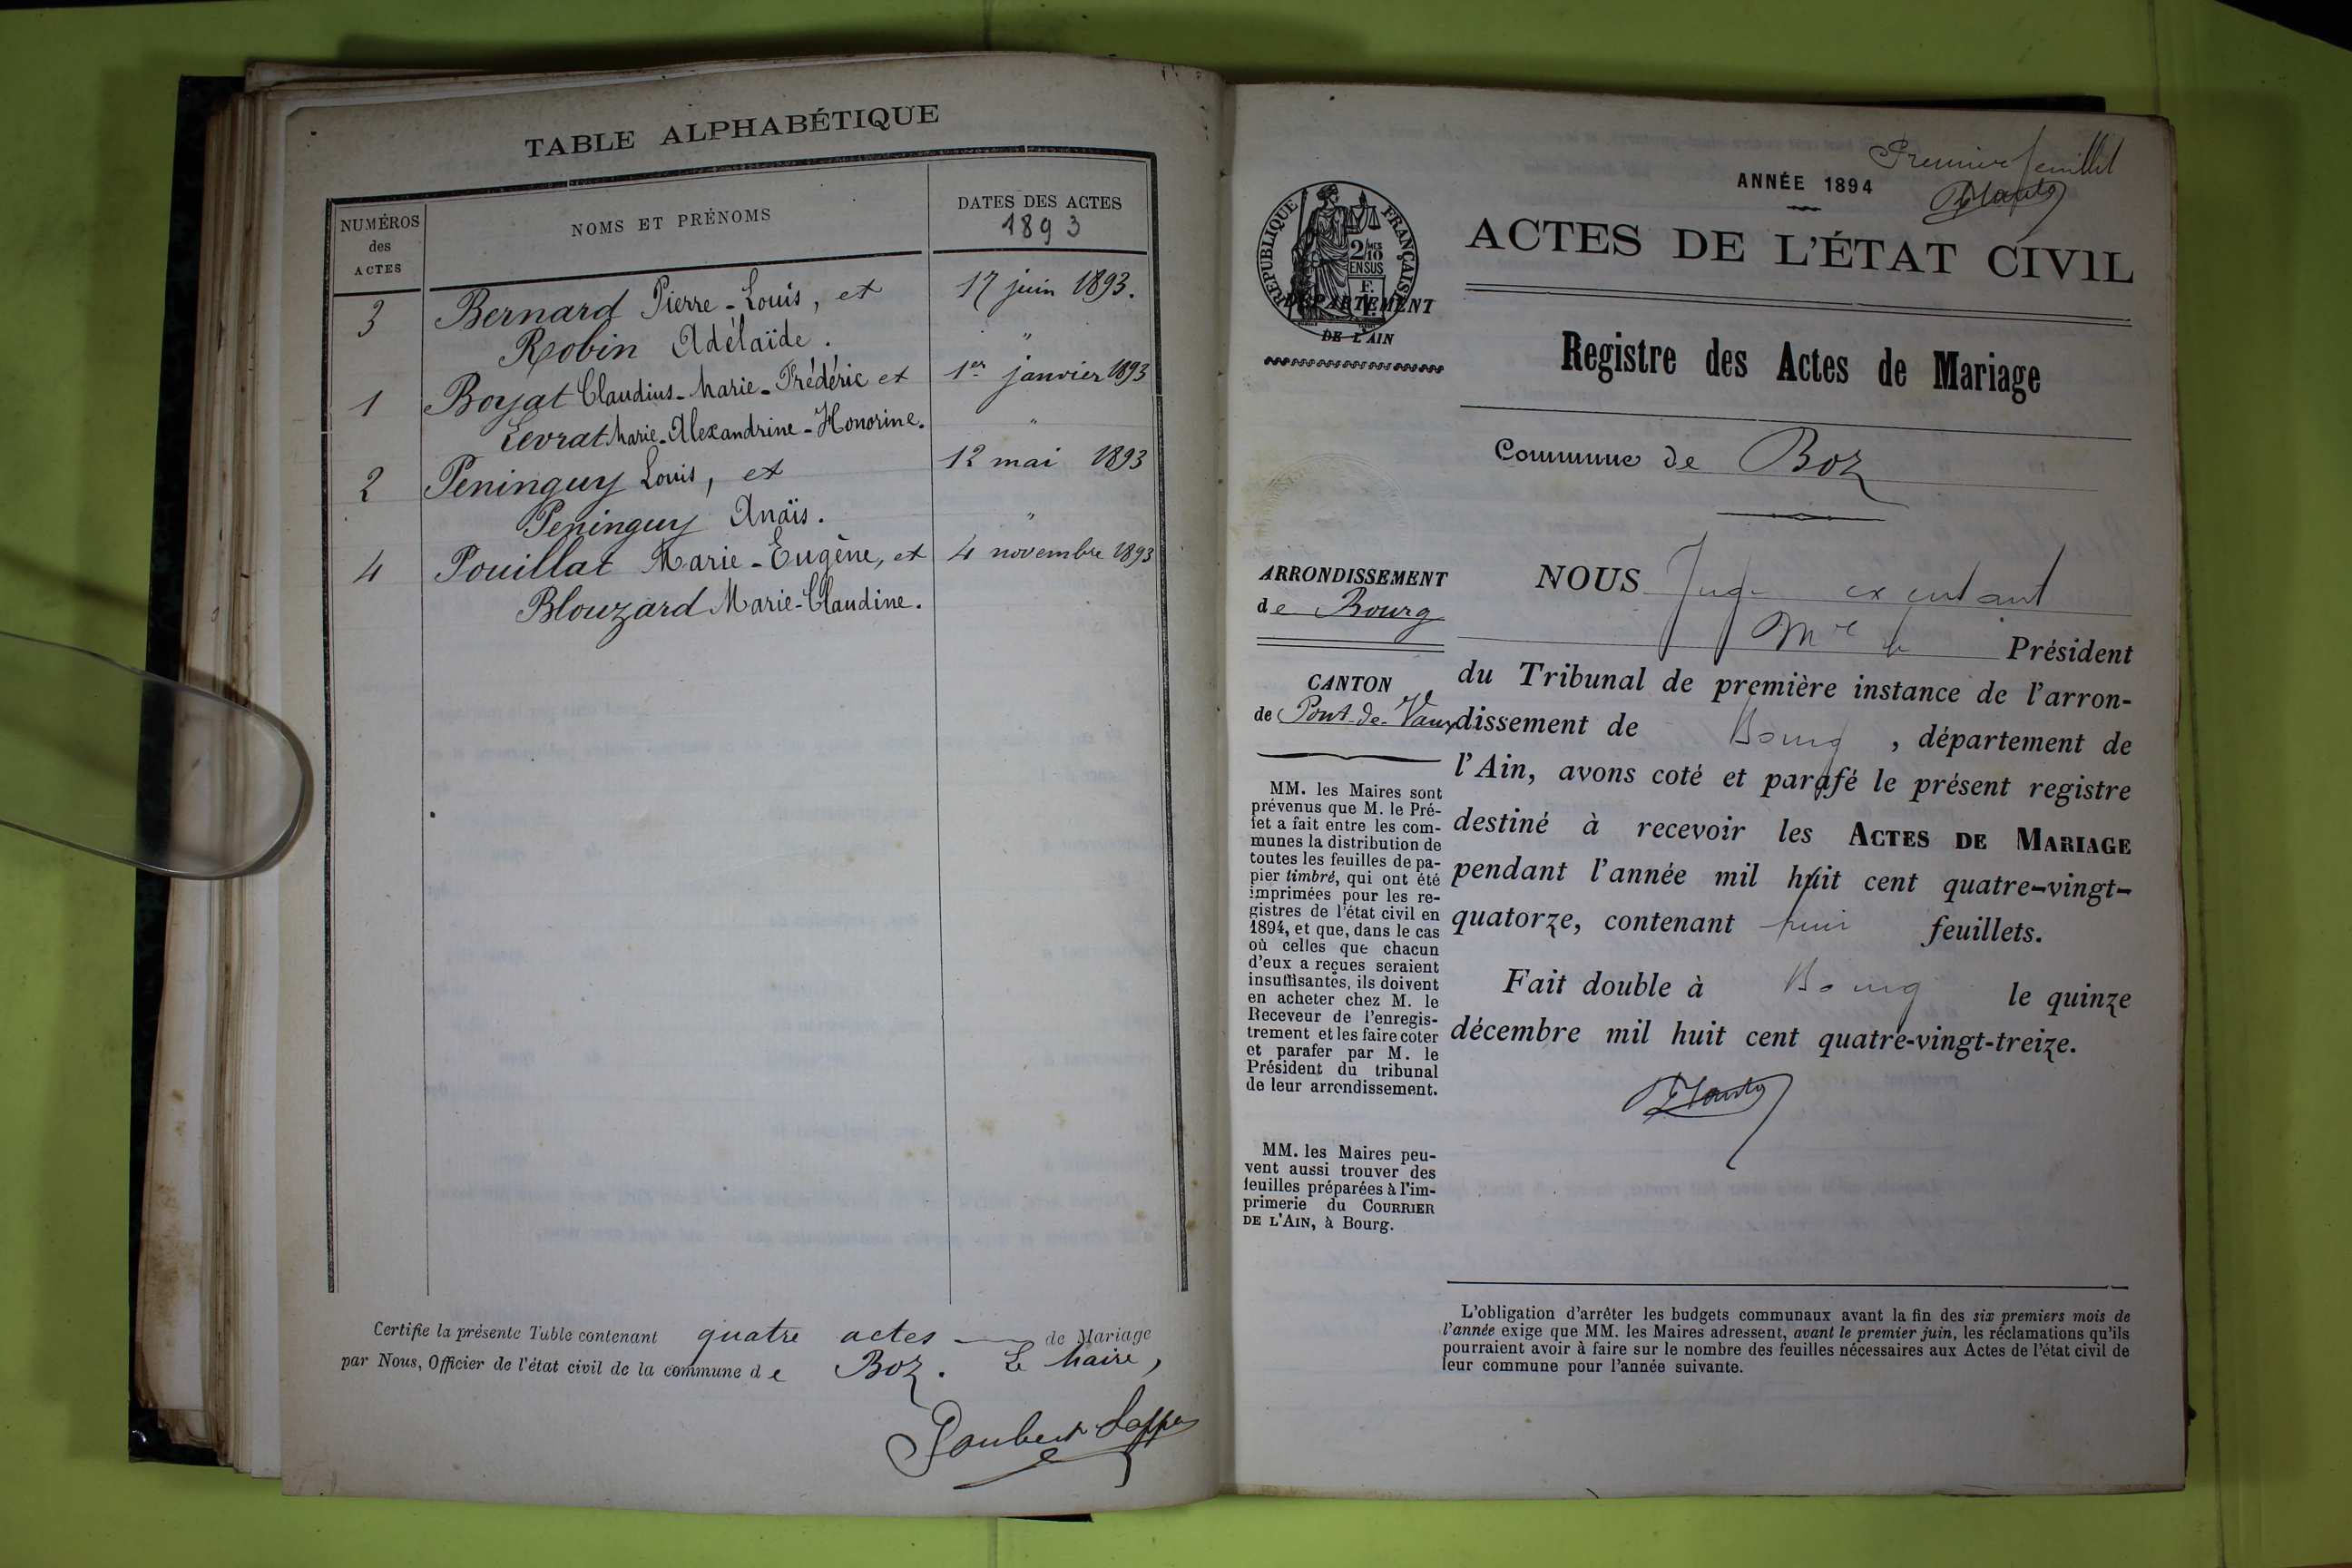 TABLE ALPHABÉTIQUE
NUMÉROS des ACTES
NOMS ET PRÉNOMS
DATES DES ACTES
1893
3 Bernard Pierre-Louis, et 17 juin 1893.
Robin Adélaïde. "
1 Boyat Claudius-Marie-Frédéric et 1er janvier 1893
Levrat Marie-Alexandrine-Honorine. "
2 Peninguy Louis, et 12 mai 1893
Peninguy Anaïs. "
4 Pouillat Marie-Eugène, et 4 novembre 1893
Blouzard Marie-Claudine.
Certifie la présente Table contenant quatre actes de Mariage
par Nous, Officier de l'état civil de la commune de Boz. Le Maire,
Premier feuillet
ANNÉE 1894
ACTES DE L'ÉTAT CIVIL
RÉPUBLIQUE FRANÇAISE
2/10 MES
EN SUS
DÉPARTEMENT
DE L'AIN
Registre des Actes de Mariage
Commune de Boz
ARRONDISSEMENT
de Bourg
CANTON
de Pont-de-Vaux
MM. les Maires sont
prévenus que M. le Pré-
fet a fait entre les com-
munes la distribution de
toutes les feuilles de pa-
pier timbré, qui ont été
imprimées pour les re-
gistres de l'état civil en
1894, et que, dans le cas
où celles que chacun
d'eux a reçues seraient
insuffisantes, ils doivent
en acheter chez M. le
Receveur de l'enregis-
trement et les faire coter
et parafer par M. le
Président du tribunal
de leur arrondissement.
MM. les Maires peu-
vent aussi trouver des
feuilles préparées à l'im-
primerie du COURRIER
DE L'AIN, à Bourg.
NOUS Juge
Président
du Tribunal de première instance de l'arron-
dissement de Bourg, département de
l'Ain, avons coté et parafé le présent registre
destiné à recevoir les ACTES DE MARIAGE
pendant l'année mil huit cent quatre-vingt-
quatorze, contenant feuillets.
Fait double à Bourg le quinze
décembre mil huit cent quatre-vingt-treize.
L'obligation d'arrêter les budgets communaux avant la fin des six premiers mois de
l'année exige que MM. les Maires adressent, avant le premier juin, les réclamations qu'ils
pourraient avoir à faire sur le nombre des feuilles nécessaires aux Actes de l'état civil de
leur commune pour l'année suivante.